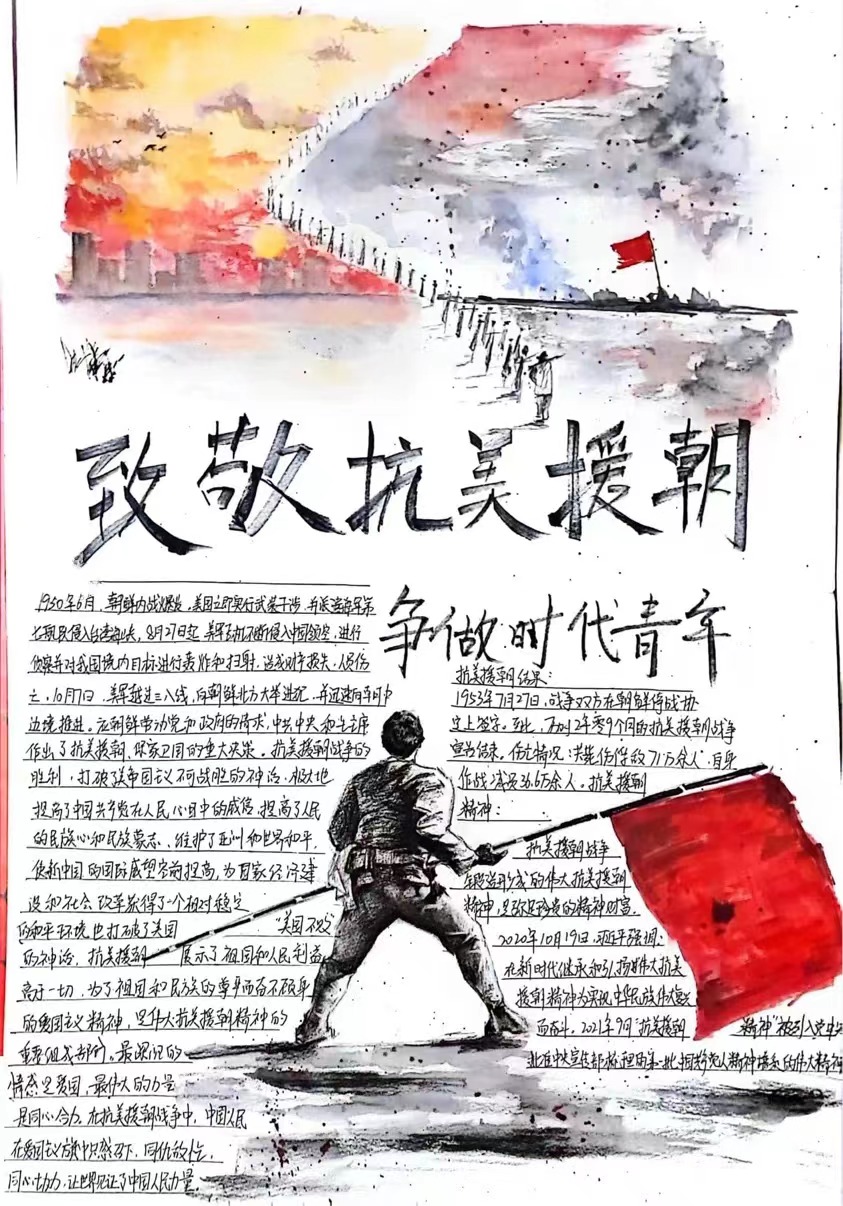 致敬抗美援朝
争做时代青年
1950年6月，朝鲜内战爆发，美国立即实行武装干涉，并派遣海军第
七舰队侵入台湾海峡，8月27日起，美军飞机不断侵入中国领空，进行
侦察并对我国境内目标进行轰炸和扫射，造成财产损失，人员伤
亡，10月7日，美军越过三八线，向朝鲜北方大举进犯，并迅速向中
边境推进。应朝鲜劳动党和政府的请求，中共中央和毛主席
作出了抗美援朝、保家卫国的重大决策。抗美援朝战争的
胜利，打破了美帝国主义不可战胜的神话，极大地
提高了中国共产党在人民心目中的威信，提高了人民
的民族心和民族，维护了亚洲和世界和平，
使新中国的国际威望空前提高，为国家经济建
设和社会改革获得了一个相对稳定
的和平环境也打破了美国 "美国不败"
的神话，抗美援朝 展示了祖国和人民利益
高于一切，为了祖国和民族的尊严而奋不顾身
的爱国主义精神，是伟大抗美援朝精神的
重要组成部分。最深沉的
情感是爱国，最伟大的力量
是同心合力。在抗美援朝战争中，中国人民
在爱国主义旗帜感召下，同仇敌忾，
同心协力，让世界见证了中国人民力量。
抗美援朝结果：
1953年7月27日，战争双方在朝鲜停战协
定上签字。至此，历时2年零9个月的抗美援朝战争
宣告结束。伤亡情况：共毙伤俘敌71万余人，自身
作战减员36.6万余人。抗美援朝
精神：
抗美援朝战争
锻造形成的伟大抗美援朝
精神，是弥足珍贵的精神财富。
2020年10月19日，习近平强调：
在新时代继承和弘扬伟大抗美
援朝精神为实现中华民族伟大复兴
而奋斗。2021年9月"抗美援朝 精神"被列入党中央
批准中央宣传部梳理的第一批中国共产党人精神谱系的伟大精神